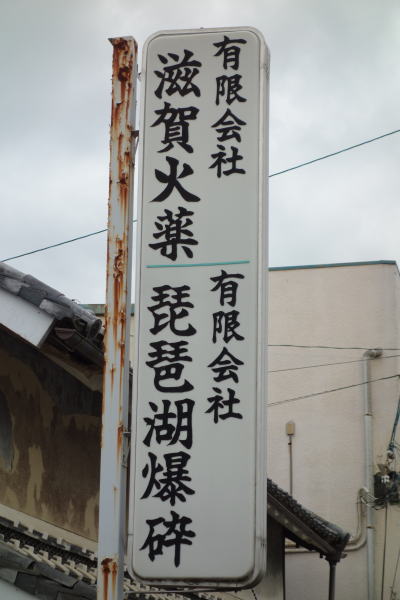 有限会社
滋賀火薬
有限会社
琵琶湖爆砕